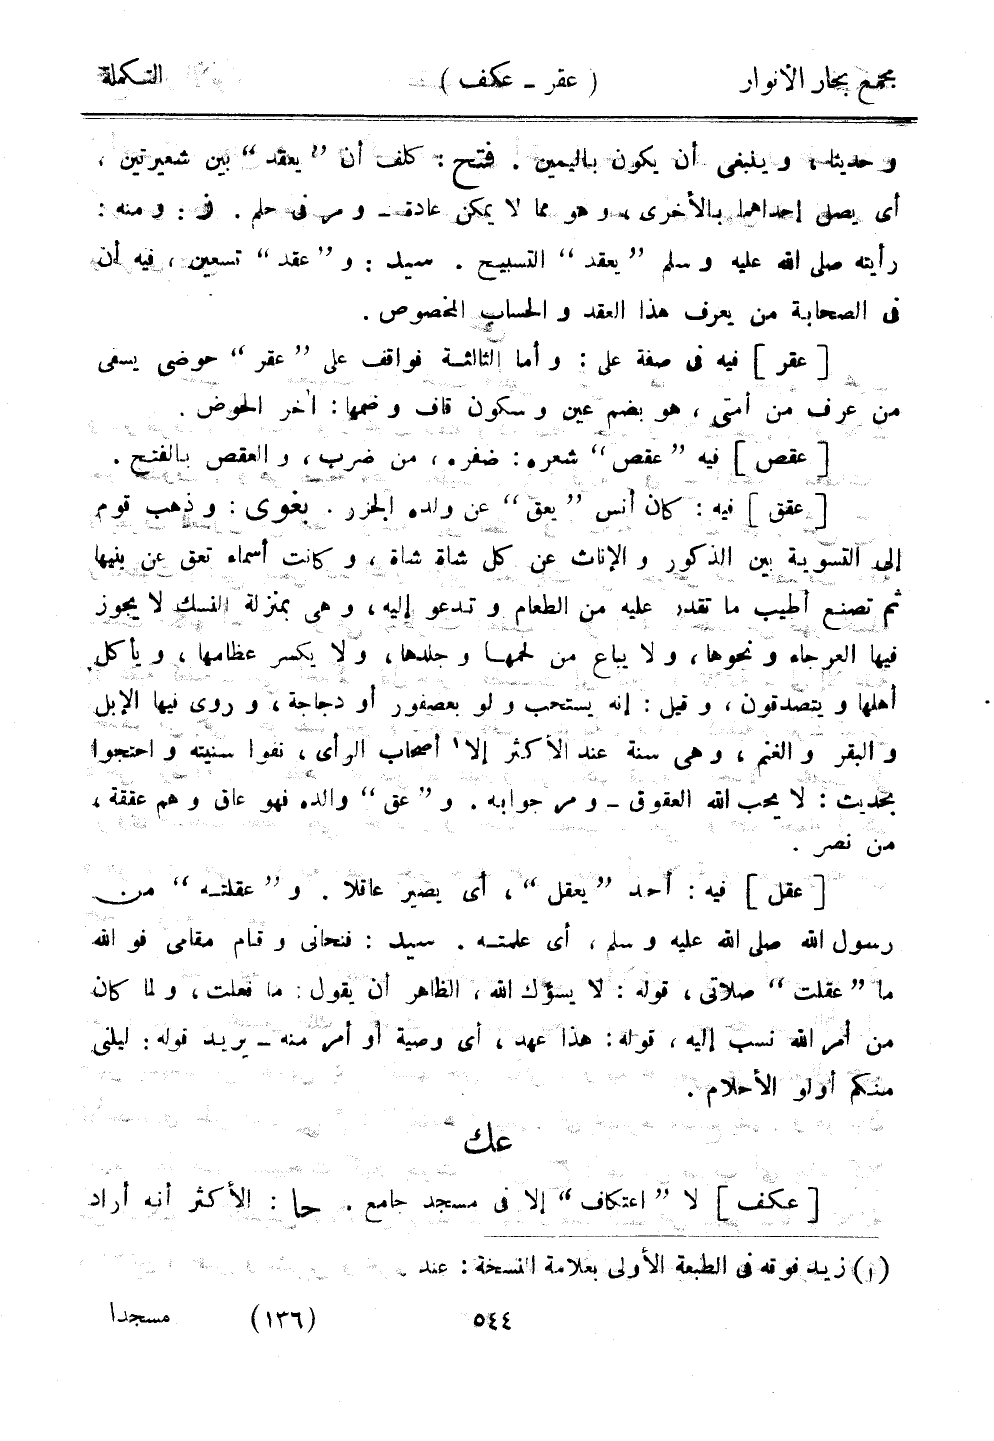 مجمع بحار الأنوار ( عقر ـ عكف ) التكملة
و حديثا ، و ينبغى أن يكون باليمين . فتح : كلف أن ”يعقد“ بين شعيرتين ،
أى يصل إحداهما بالأخرى ، و هو مما لا يمكن عادة ـ و مر فى حلم . ف : و منه :
رأيته صلى الله عليه و سلم ”يعقد“ التسبيح . سيد : و ”عقد“ تسعين ، فيه أن
فى الصحابة من يعرف هذا العقد و الحساب المخصوص .
[ عقر ] فيه فى صفة على : و أما الثالثة فواقف على ”عقر“ حوضى يسقى
من عرف من أمتى ، هو بضم عين و سكون قاف و ضمها : آخر الحوض .
[ عقص ] فيه ”عقص“ شعره : ضفره ، من ضرب ، و العقص بالفتح .
[ عقق ] فيه : كان أنس ”يعق“ عن ولده الجزر . بغوى : و ذهب قوم
إلى التسوية بين الذكور و الإناث عن كل شاة شاة ، و كانت أسماء تعق عن بنيها
ثم تصنع أطيب ما تقدر عليه من الطعام و تدعو إليه ، و هى بمنزلة النسك لا يجوز
فيها العرجاء و نحوها ، و لا يباع من لحمها و جلدها ، و لا يكسر عظامها ، و يأكل
أهلها و يتصدقون ، و قيل : إنه يستحب و لو بعصفور أو دجاجة ، و روى فيها الإبل
و البقر و الغنم ، و هى سنة عند الأكثر إلا١ أصحاب الرأى ، نفوا سنيته و احتجوا
بحديث : لا يحب الله العقوق ـ و مر جوابه . و ”عق“ والده فهو عاق و هم عققة ،
من نصر .
[ عقل ] فيه : أحد ”يعقل“ ، أى يصير عاقلا . و ”عقلته“ من
رسول الله صلى الله عليه و سلم ، أى علمته . سيد : فنحانى و قام مقامى فو الله
ما ”عقلت“ صلاتى ، قوله : لا يسؤك الله ، الظاهر أن يقول : ما فعلت ، و لما كان
من أمر الله نسب إليه ، قوله : هذا عهد ، أى وصية أو أمر منه ـ يريد قوله : ليلنى
منكم أولو الأحلام .
عك
[ عكف ] لا ”اعتكاف“ إلا فى مسجد جامع . حا : الأكثر أنه أراد
(١) زيد فوقه فى الطبعة الأولى بعلامة النسخة : عند .
٥٤٤ (١٣٦) مسجدا